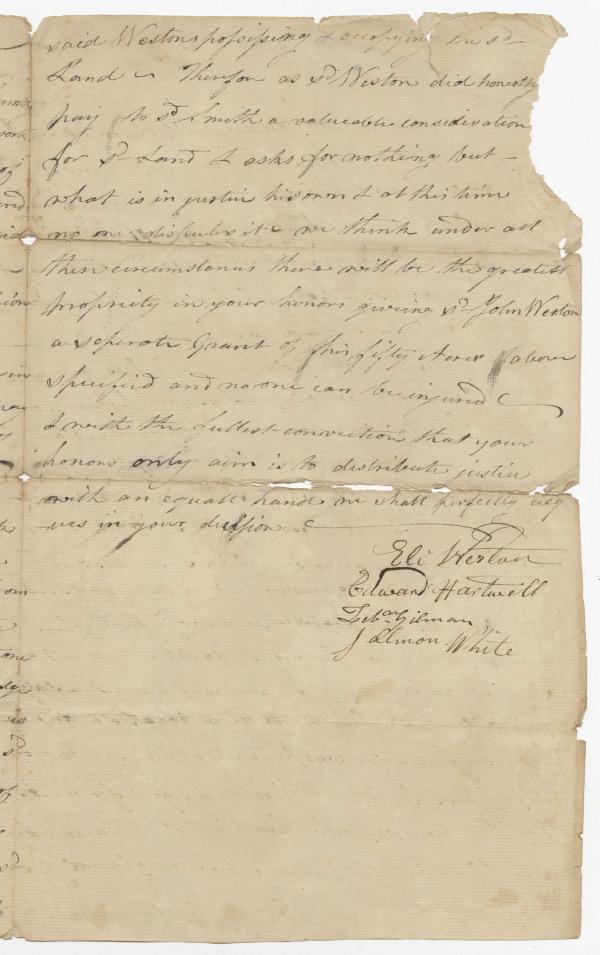 said Weston possissing & occupying the sd
Land Therefor as sd Weston did honestly
pay to sd Smith a valueable considiration
for sd Land & asks for nothing but
what is in justice his own & at this time
no one disputes it we think under all
these circumstances there will be the greatest
propriety in your honors giveing sd John Weston
a seperate Grant of this fifty Acres above
specified and no one can be injured
& with the fullest conviction that your
honors only aim is to distribute justice
with an equall hand we shall perfectly acq
-ues in your dission
Eli Weston
Edward Hartwell
Gilman
Salmon White